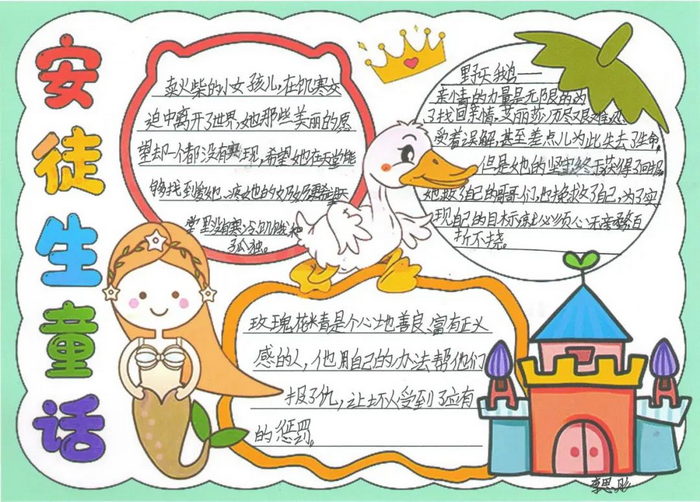 安徒生童话
卖火柴的小女孩儿,在饥寒交
迫中离开了世界,她那些美丽的愿
望却一个都没有实现,希望她在天堂能
够找到爱她、疼她的奶奶
堂里没有寒冷、饥饿和
孤独。
野天鹅——
亲情的力量是无限的为
了找回亲情,艾丽莎历尽艰难
受着误解,甚至差点儿为此失去了生命,
但是她的坚强终于获得了回报
她救了自己的哥哥们,也拯救了自己,为了实
现自己的目标就必须
折不挠。
玫瑰花精是个心地善良、富有正义
感的人,他用自己的办法帮他们
报了仇,让坏人受到了应有
的惩罚。
李思彤